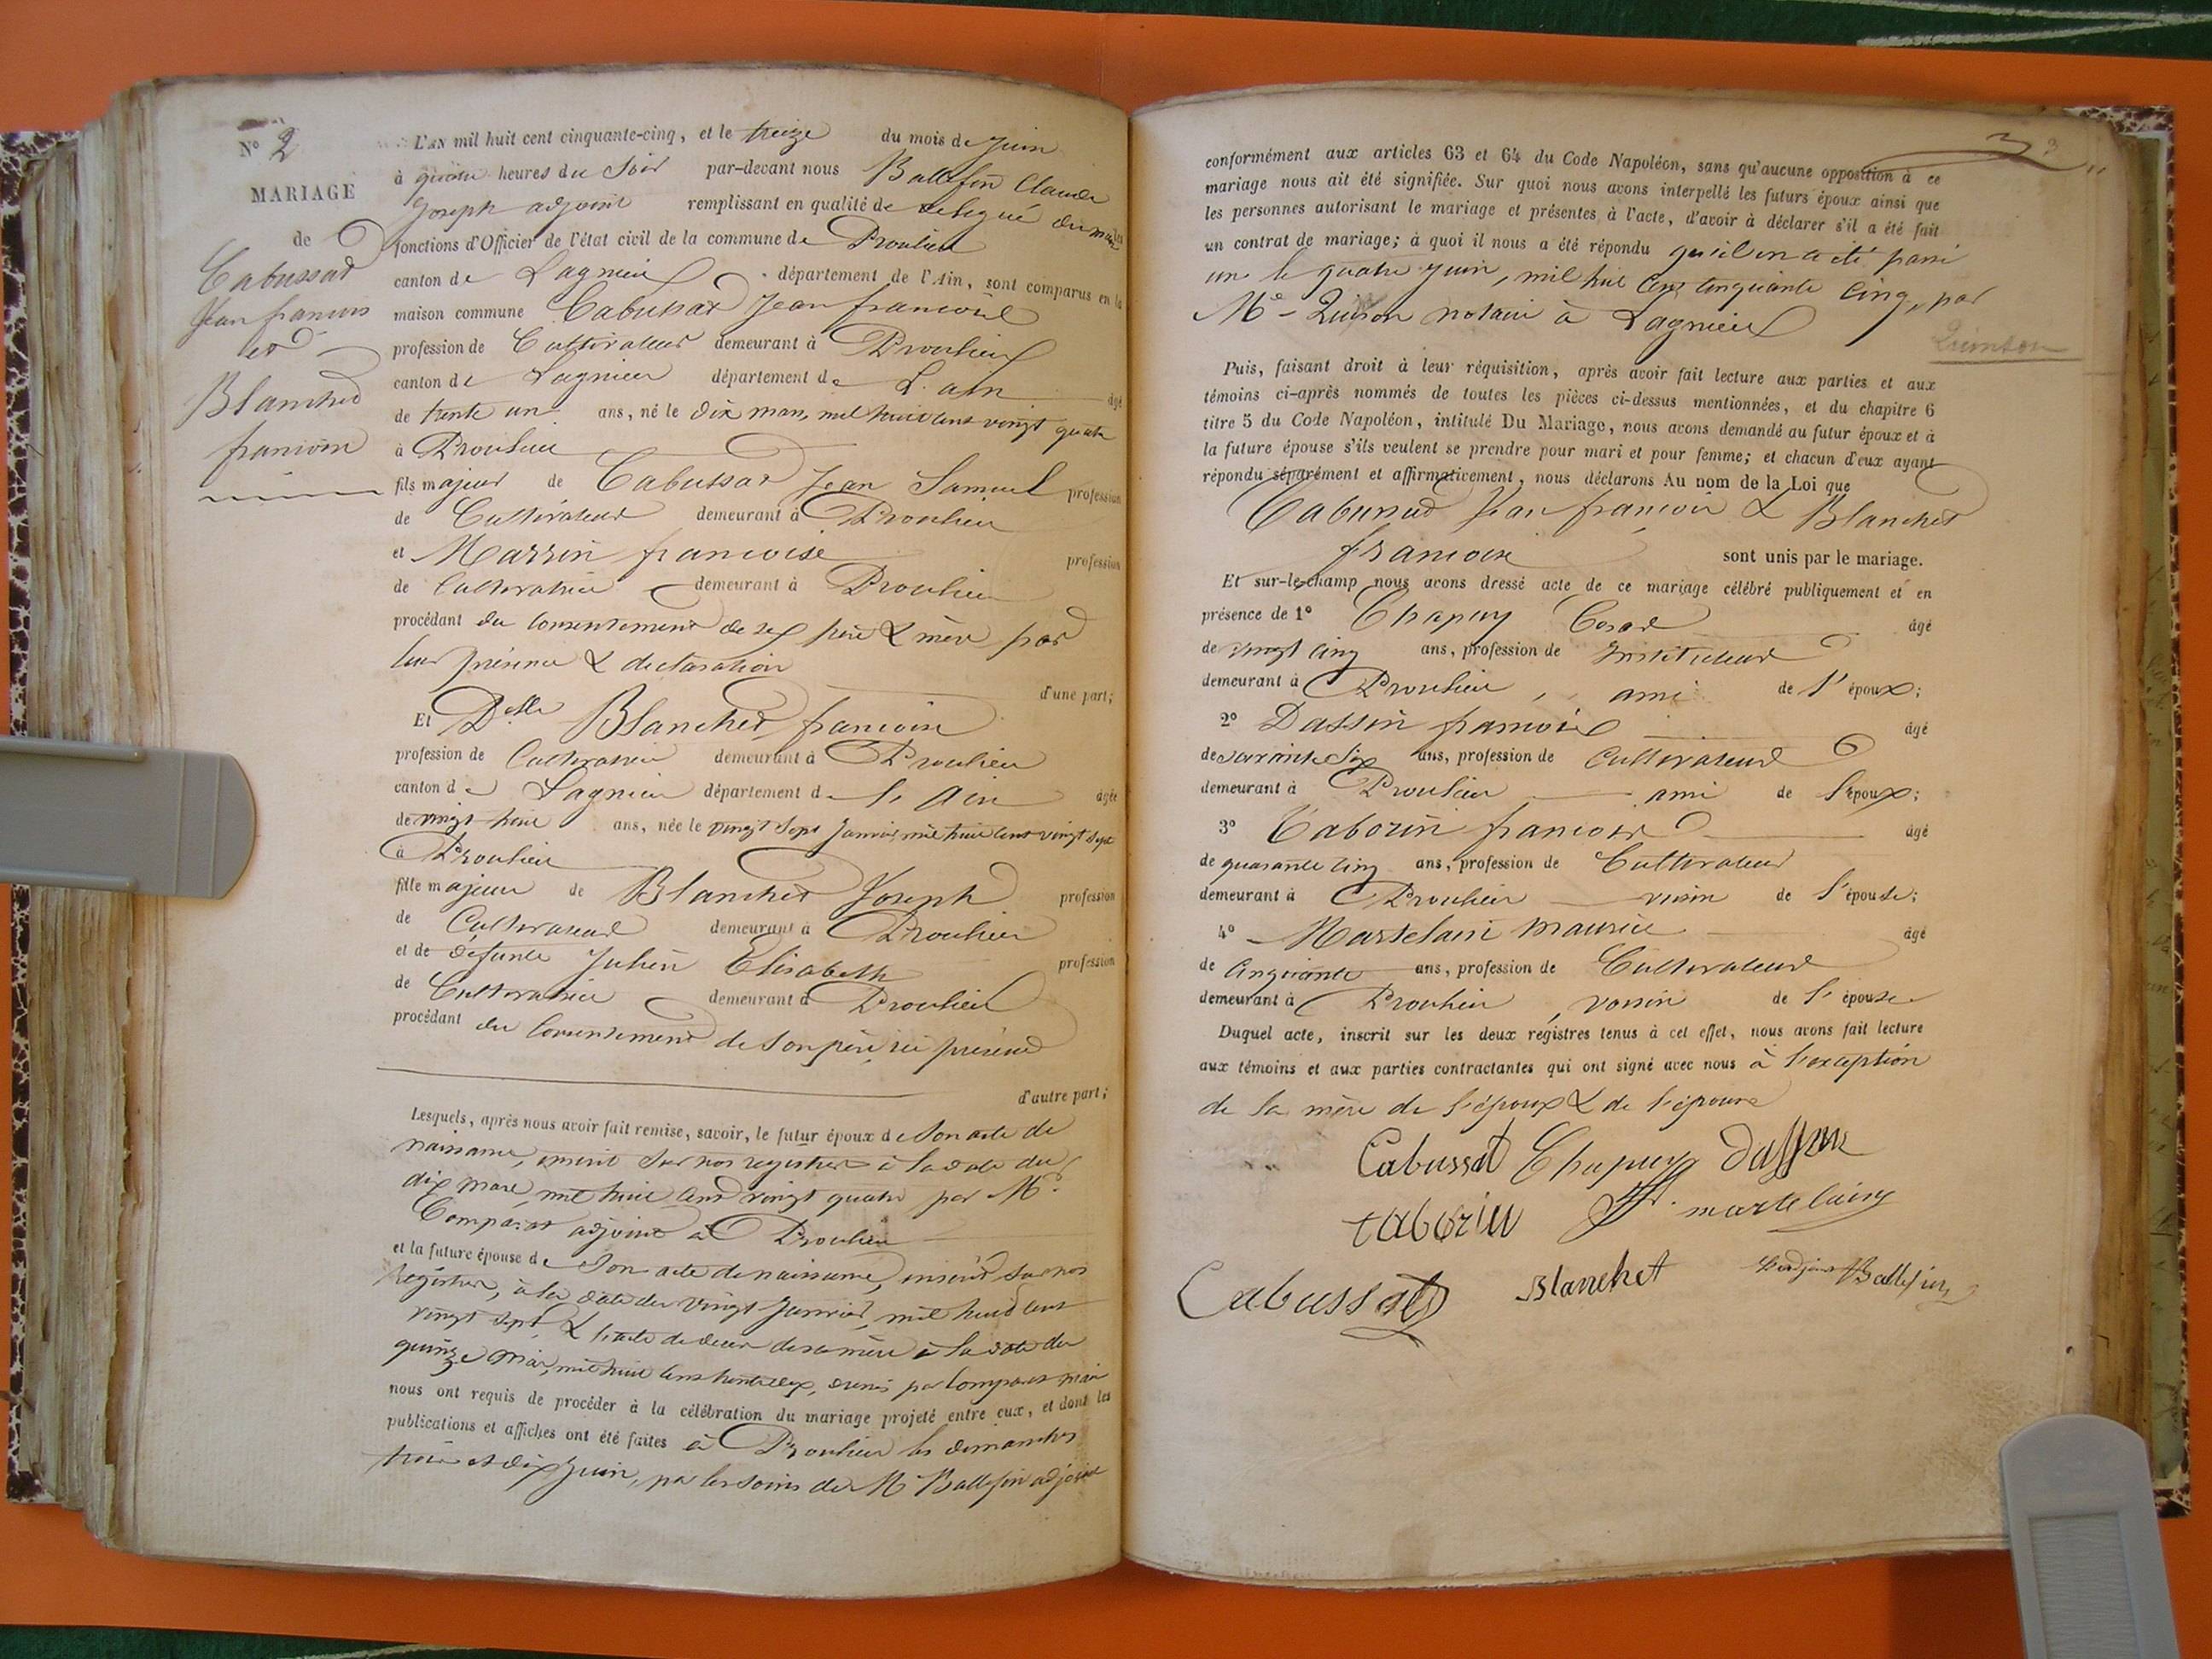 N° 2
MARIAGE
de
Cabussat
Jean francois
et
Blanchet
francoise
L'AN mil huit cent cinquante-cinq, et le treize du mois de Juin
à quatre heures du Soir par-devant nous Ballefin Claude
Joseph adjoint remplissant en qualité de délégué du maire les
fonctions d'Officier de l'état civil de la commune de Proulieu
canton de Lagnieu département de l'Ain, sont comparus en la
maison commune Cabussat Jean francois
profession de Cultivateur demeurant à Proulieu
canton de Lagnieu département de L'ain âgé
de trente un ans, né le dix mars, mil huit cent vingt quatre
à Proulieu
fils majeur de Cabussat Jean Samuel profession
de Cultivateur demeurant à Proulieu
et Marrin francoise profession
de Cultivatrice demeurant à Proulieu
procédant du consentement de ses père & mère par
leur présence & declaration
d'une part;
Et Delle Blanchet francoise
profession de Cultivatrice demeurant à Proulieu
canton de Lagnieu département de l'Ain âgée
de vingt huit ans, née le vingt Sept Janvier mil huit cent vingt sept
à Proulieu
fille majeure de Blanchet Joseph profession
de Cultivateur demeurant à Proulieu
et de défunte Julien Elisabeth profession
de Cultivatrice demeurant à Proulieu
procédant du consentement de son père ici présent
d'autre part;
Lesquels, après nous avoir fait remise, savoir, le futur époux de Son acte de
naissance, inscrit sur nos registres à la date du
dix mars, mil huit cent vingt quatre par Mr
Comparat adjoint à Proulieu
et la future épouse de Son acte de naissance, inscrit sur nos
Registres, à la date du vingt Janvier, mil huit cent
vingt sept, & l'acte de deces de sa mère à la date du
quinze mai, mil huit cent trente deux, dressé par Comparat maire
nous ont requis de procéder à la célébration du mariage projeté entre eux, et dont les
publications et affiches ont été faites à Proulieu les dimanches
trois et dix Juin, par les soins de Mr Ballefin adjoint
3
conformément aux articles 63 et 64 du Code Napoléon, sans qu'aucune opposition à ce
mariage nous ait été signifiée. Sur quoi nous avons interpellé les futurs époux ainsi que
les personnes autorisant le mariage et présentes à l'acte, d'avoir à déclarer s'il a été fait
un contrat de mariage; à quoi il nous a été répondu qu'il en a été passé
un le quatre Juin, mil huit cent cinquante cinq, par
Me Quinson notaire à Lagnieu
Quinson
Puis, faisant droit à leur réquisition, après avoir fait lecture aux parties et aux
témoins ci-après nommés de toutes les pièces ci-dessus mentionnées, et du chapitre 6
titre 5 du Code Napoléon, intitulé Du Mariage, nous avons demandé au futur époux et à
la future épouse s'ils veulent se prendre pour mari et pour femme; et chacun d'eux ayant
répondu séparément et affirmativement, nous déclarons Au nom de la Loi que
Cabussat Jean francois & Blanchet
francoise sont unis par le mariage.
Et sur-le-champ nous avons dressé acte de ce mariage célébré publiquement et en
présence de 1° Chapuy Cesar âgé
de vingt cinq ans, profession de Instituteur
demeurant à Proulieu, ami de l'époux;
2° Dassin francois âgé
de soixante Six ans, profession de Cultivateur
demeurant à Proulieu ami de l'époux;
3° Taborin francois âgé
de quarante cinq ans, profession de Cultivateur
demeurant à Proulieu voisin de l'épouse;
4° Martelain maurice âgé
de Cinquante ans, profession de Cultivateur
demeurant à Proulieu, voisin de l'épouse
Duquel acte, inscrit sur les deux registres tenus à cet effet, nous avons fait lecture
aux témoins et aux parties contractantes qui ont signé avec nous à l'exception
de la mère de l'époux & de l'épouse
Cabussat Chapuy Dassin
taborin martelain
Cabussat Blanchet L'adjoint Ballefin